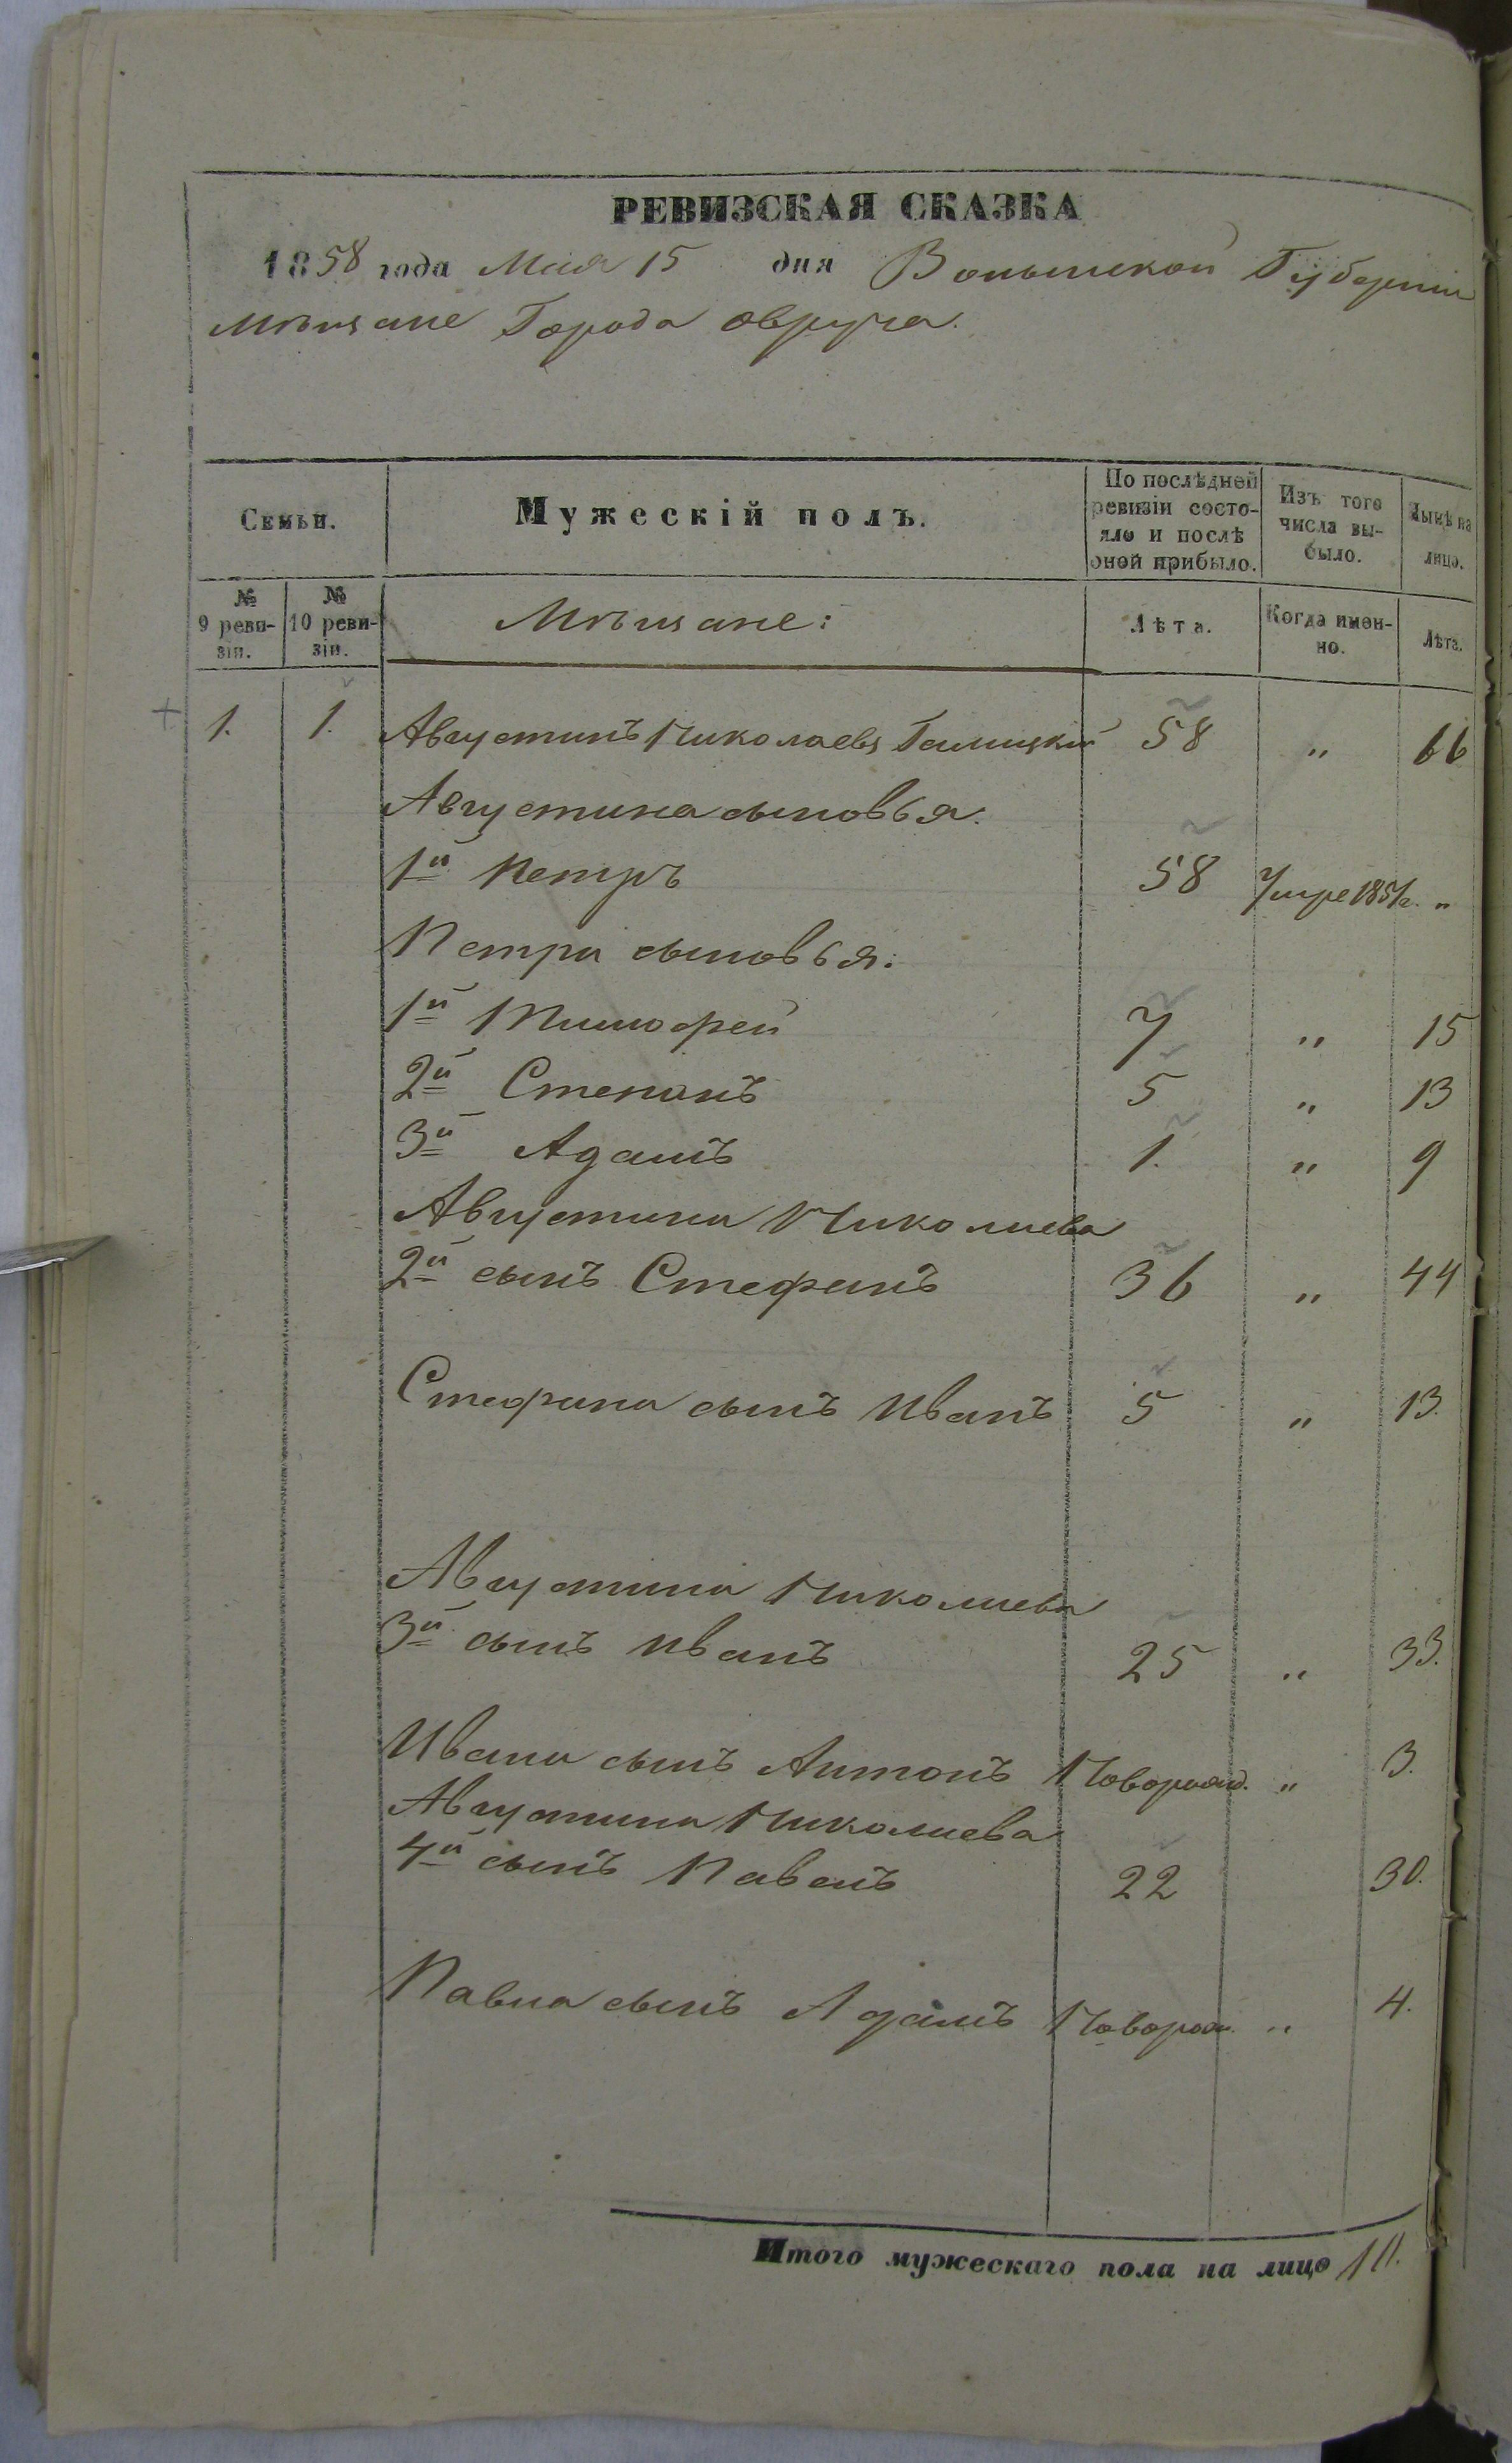 РЕВИЗСКАЯ СКАЗКА
1858 года Мая 15 дня Волынской Губерніи
Мѣщане Города Овруча.
Семьи.
Мужескій полъ.
По послѣдней ревизіи состояло и послѣ оной прибыло.
Изъ того числа выбыло.
Нынѣ на лицо.
№ 9 ревизіи.
№ 10 ревизіи.
Мѣщане:
Лѣта.
Когда именно.
Лѣта.
1. 1. Августинъ Николаевъ Галицкій 58 " 66
Августина сыновья.
1й Петръ 58 Умре 1851г. "
Петра сыновья:
1й Тимофей 7 " 15
2й Степанъ 5 " 13
3й Адамъ 1. " 9
Августина Николаева
2й сынъ Стефанъ 36 " 44
Стефана сынъ Иванъ 5 " 13.
Августина Николаева
3й сынъ Иванъ 25 " 33.
Ивана сынъ Антонъ Новорожд. " 3.
Августина Николаева
4й сынъ Павелъ 22 30.
Павла сынъ Адамъ Новорож. " 4.
Итого мужескаго пола на лицо 10.